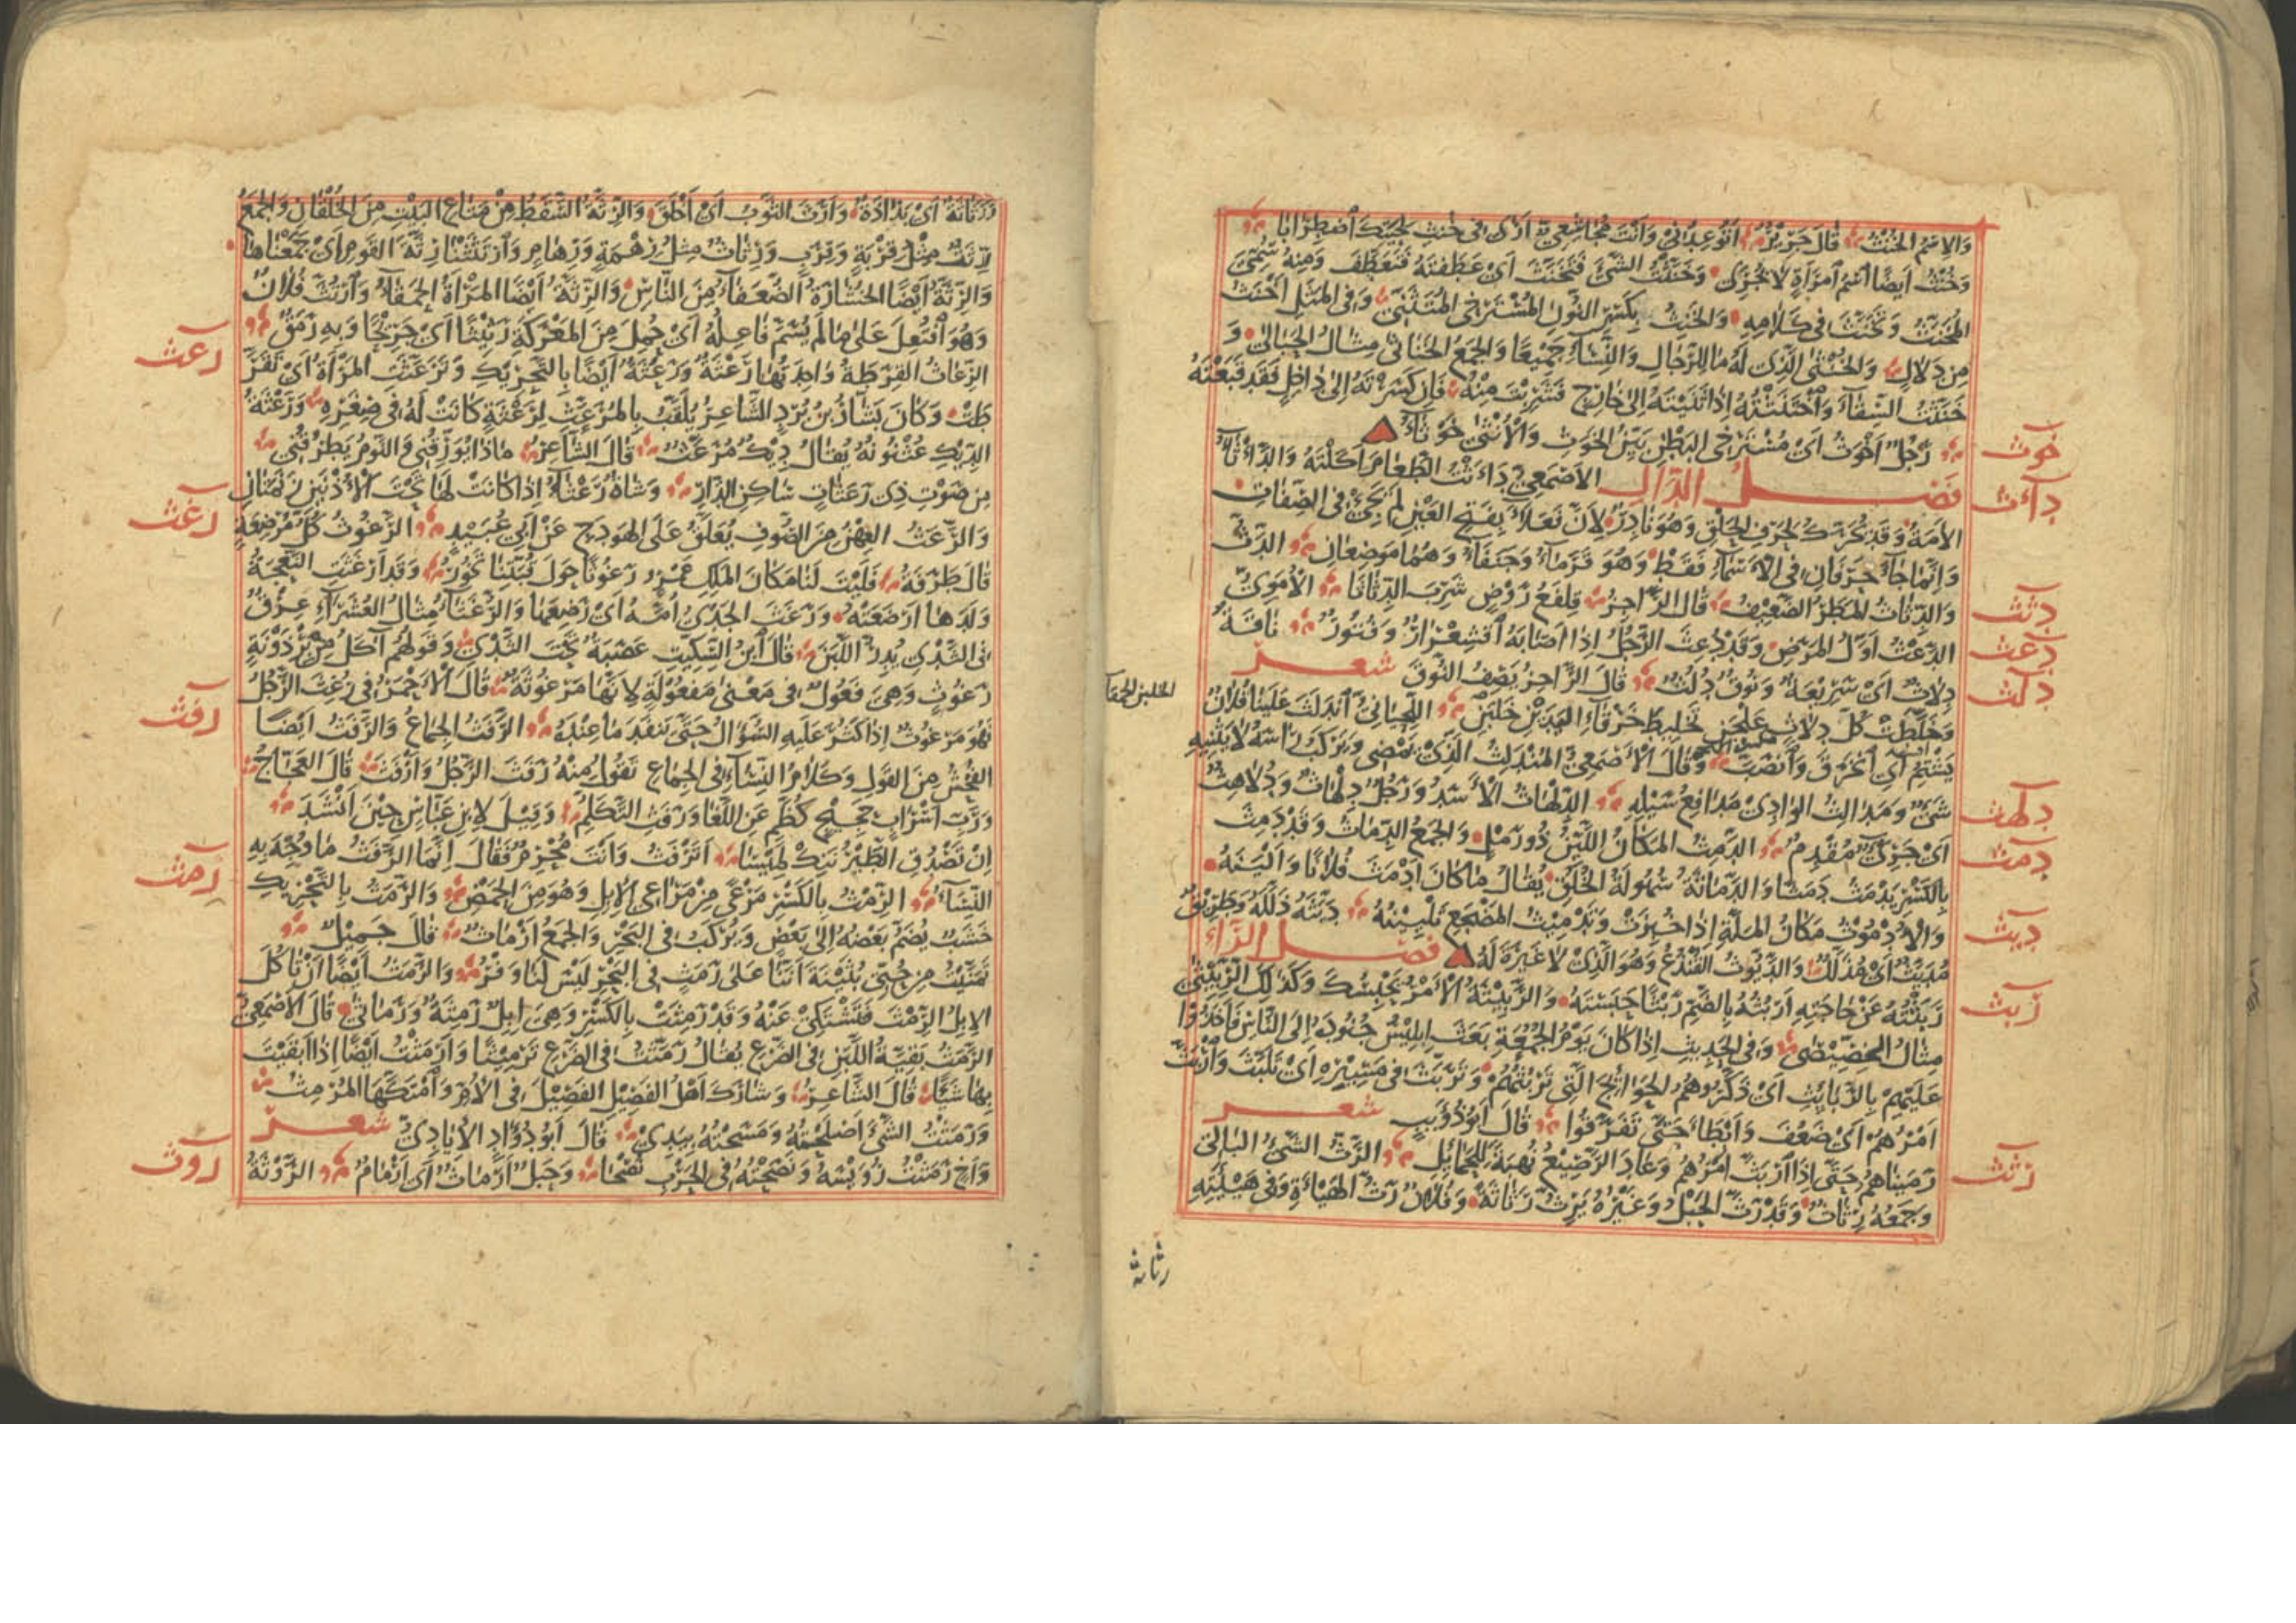 وَالِاسْمُ الخُنْثُ قَالَ جَرِيْرٌ اَتُوعِدُنِىْ وَاَنْتَ مُجَاشِعِىٌّ اَرٰى فى خُنْثِ لِحْيَتِكَ اضْطِرَابَا
وَخُنْثُ اَيضًا اسْمُ امْرَاَةٍ لَا يُجْرٰى وَخَنَّثْتُ الشَّئَ فَتَخَنَّثَ اَىْ عَطَّفْتُهُ فَتَعَطَّفَ وَمِنْهُ سُمِّىَ
المُخَنَّثُ وَتَخَنَّثَ فى كَلَامِهِ وَالخَنِثُ بِكَسْرِ النُّونِ المُسْتَرْخِى المُتَثَنِّىْ وَفى المَثَلِ اَخْنَثُ
مِن دَلَالٍ وَالخُنْثٰى الَّذِىْ لَهُ مَا لِلرِّجَالِ وَالنِّسَاءِ جَمِيْعًا وَالجَمْعُ الخَنَاثٰى مِثَالُ الحَبَالٰى وَ
خَنَثْتُ السِّقَاءَ وَاخْتَنَثْتُهُ اِذَا ثَنَيْتَهُ اِلٰى خَارِجٍ فَشَرِبْتَ مِنْهُ فَاِن كَسَرْتَهُ اِلٰى دَاخِلٍ فَقَدْ قَبَعْتَهُ
خوث
رَجُلٌ اَخْوَثُ اَىْ مُسْتَرْخِى البَطْنِ بَيِّنُ الخَوَثِ وَالاُنْثٰى خَوْثَاءُ
دأث
فصل الدال الاَصْمَعِىُّ دَاَثْتُ الطَّعَامَ اَكَلْتُهُ وَالدَّاْثَاءُ
الاَمَةُ وَقَدْ تُحَرَّكُ لِحَرْفِ الحَلْقِ وَهُوَ نَادِرٌ لِاَنَّ فَعَلَاءَ بِفَتْحِ العَيْنِ لَمْ يَجِئْ فى الصِّفَاتِ
وَاِنَّمَا جَاءَ حَرْفَانِ فى الاَسْمَاءِ فَقَطْ وَهُوَ قَرَمَاءُ وَجَنَفَاءُ وَهُمَا مَوْضِعَانِ
دثث
الدَّثُّ وَالدِّثَاثُ المَطَرُ الضَّعِيْفُ قَالَ الرَّاجِزُ قِلْفَعُ رَوْضٍ شَرِبَ الدِّثَاثَا
دعث
الاُمَوِىُّ الدَّعْثُ اَوَّلُ المَرَضِ وَقَدْ دُعِثَ الرَّجُلُ اِذَا اَصَابَهُ اقْشِعْرَارٌ وَفُتُورٌ
دلث
نَاقَةٌ دِلَاثٌ اَىْ سَرِيْعَةٌ وَنُوقٌ دُلُثٌ قَالَ الرَّاجِزُ يَصِفُ النُّوقَ شعر
وَخَلَّطَتْ كُلُّ دِلَاثٍ عَلْجَنِ تَخْلِيطَ خَرْقَاءِ اليَدَيْنِ خَلْبَنِ اللِّحْيَانِىُّ انْدَلَثَ عَلَيْنَا فُلَانٌ
يَشْتِمُ اَىِ انْخَرَقَ وَانْصَبَّ وَقَالَ الاَصْمَعِىُّ المُنْدَلِثُ الَّذِىْ يَمْضِى وَيَرْكَبُ رَاسَهُ لَا يَثْنِيْهِ
شَئٌ وَمَدَالِثُ الوَادِىْ مَدَافِعُ سَيْلِهِ
دلهث
الدِّلْهَاثُ الاَسَدُ وَرَجُلٌ دِلْهَاثٌ وَدُلَاهِثٌ اَىْ جَرِىٌّ مُقْدِمٌ
دمث
الدَّمِثُ المَكَانُ اللَّيِّنُ ذُو رَمْلٍ وَالجَمْعُ الدِّمَاثُ وَقَدْ دَمِثَ
بِالكَسْرِ يَدْمَثُ دَمَثًا وَالدَّمَاثَةُ سُهُولَةُ الخُلُقِ يُقَالُ مَا كَانَ اَدْمَثَ فُلَانًا وَاَلْيَنَهُ
وَالاُدْمُوثُ مَكَانُ المَلَّةِ اِذَا خُبِزَتْ وَتَدْمِيثُ المَضْجَعِ تَلْيِيْنُهُ
ديث
دَيَّثَهُ ذَلَّلَهُ وَطَرِيْقٌ مُدَيَّثٌ اَىْ مُذَلَّلٌ وَالدَّيُّوثُ القُنْذُعُ وَهُوَ الَّذِىْ لَا غَيْرَةَ لَهُ فصل الراء
ربث
رَبَثْتُهُ عَنْ حَاجَتِهِ اَرْبُثُهُ بِالضَّمِّ رَبْثًا حَبَسْتُهُ وَالرَّبِيْثَةُ الاَمْرُ يَحْبِسُكَ وَكَذٰلِكَ الرِّبِّيْثٰى
مِثَالُ الخِصِّيْصٰى وَفى الحَدِيثِ اِذَا كَانَ يَوْمُ الجُمُعَةِ بَعَثَ اِبْلِيْسُ جُنُودَهُ اِلَى النَّاسِ فَاَخَذُوْا
عَلَيْهِمْ بِالرَّبَائِثِ اَىْ ذَكَّرُوهُمُ الحَوَائِجَ الَّتِى تَرْبُثُهُمْ وَتَرَبَّثَ فى مَسِيْرِهِ اَىْ تَلَبَّثَ وَارْبَثَّ
اَمْرُهُمْ اَىْ ضَعُفَ وَاَبْطَاَ حَتّٰى تَفَرَّقُوا قَالَ اَبُو ذُؤَيْبٍ شعر
رَمَيْنَاهُمْ حَتّٰى اِذَا ارْبَثَّ اَمْرُهُمْ وَعَادَ الرَّصِيْعُ نُهْيَةً لِلحَمَائِلِ
رثث
الرَّثُّ الشَّئُ البَالِى
وَجَمْعُهُ رِثَاثٌ وَقَدْ رَثَّ الحَبْلُ وَغَيْرُهُ يَرِثُّ رَثَاثَةً وَفُلَانٌ رَثُّ الهَيْاَةِ وَفى هَيْئَتِهِ
رثاثة
وَرَثَاثَةٌ اَىْ بَذَاذَةٌ وَاَرَثَّ الثَّوْبُ اَىْ اَخْلَقَ وَالرِّثَّةُ السَّقَطُ مِنْ مَتَاعِ البَيْتِ مِنَ الخُلْقَانِ وَالجَمْعُ
رِثَثٌ مِثْلُ قِرْبَةٍ وَقِرَبٍ وَرِثَاثٌ مِثْلُ رِهْمَةٍ وَرِهَامٍ وَارْتَثَثْنَا رِثَّةَ القَوْمِ اَىْ جَمَعْنَاهَا
وَالرِّثَّةُ اَيْضًا الخُشَارَةُ الضُّعَفَاءُ مِنَ النَّاسِ وَالرِّثَّةُ اَيْضًا المَرْاَةُ الحَمْقَاءُ وَارْتُثَّ فُلَانٌ
وَهُوَ افْتُعِلَ عَلٰى مَا لَمْ يُسَمَّ فَاعِلُهُ اَىْ حُمِلَ مِنَ المَعْرَكَةِ رَثِيْثًا اَىْ جَرِيْحًا وَبِهِ رَمَقٌ
رعث
الرِّعَاثُ القِرَطَةُ وَاحِدَتُهَا رَعْثَةٌ وَرَعَثَةٌ اَيْضًا بِالتَّحْرِيْكِ وَتَرَعَّثَتِ المَرْاَةُ اَىْ تَقَرَّ
طَتْ وَكَانَ بَشَّارُ بْنُ بُرْدٍ الشَّاعِرُ يُلَقَّبُ بِالمُرَعَّثِ لِرَعْثَةٍ كَانَتْ لَهُ فى صِغَرِهِ وَرَعْثَةُ
الدِّيْكِ عُثْنُونُهُ يُقَالُ دِيْكٌ مُرَعَّثٌ قَالَ الشَّاعِرُ مَاذَا يُؤَرِّقُنِى وَالنَّوْمُ يَطْرُقُنِى
مِن صَوْتِ ذِى رَعَثَاتٍ سَاكِنِ الدَّارِ وَشَاةٌ رَعْثَاءُ اِذَا كَانَتْ لَهَا تَحْتَ الاُذُنَيْنِ زَنَمَتَانِ
وَالرَّعْثُ العِهْنُ مِنَ الصُّوفِ يُعَلَّقُ عَلَى الهَوْدَجِ عَنْ اَبِى عُبَيْدٍ
رغث
الرَّغُوثُ كُلُّ مُرْضِعَةٍ
قَالَ طَرَفَةُ فَلَيْتَ لَنَا مَكَانَ المَلْكِ عَمْرٍو رَغُوثًا حَوْلَ قُبَّتِنَا تَخُوْرُ وَقَدْ اَرْغَثَتِ النَّعْجَةُ
وَلَدَهَا اَرْضَعَتْهُ وَرَغَثَ الجَدْىُ اُمَّهُ اَىْ رَضِعَهَا وَالرُّغَثَاءُ مِثَالُ العُشَرَاءِ عِرْقٌ
فى الثَّدْىِ يُدِرُّ اللَّبَنَ قَالَ ابْنُ السِّكِّيْتِ عَصَبَةٌ تَحْتَ الثَّدْىِ وَقَوْلُهُمْ آكَلُ مِنْ بِرْذَوْنَةٍ
رَغُوْثٍ وَهِىَ فَعُولٌ فى مَعْنٰى مَفْعُوْلَةٍ لِاَنَّهَا مَرْغُوثَةٌ قَالَ الاَحْمَرُ فى رُغِثَ الرَّجُلُ
فَهُوَ مَرْغُوْثٌ اِذَا كَثُرَ عَلَيْهِ السُّؤَالُ حَتّٰى يَنْفَدَ مَا عِنْدَهُ
رفث
الرَّفَثُ الجِمَاعُ وَالرَّفَثُ اَيْضًا
الفُحْشُ مِنَ القَوْلِ وَكَلَامُ النِّسَاءِ فى الجِمَاعِ تَقُوْلُ مِنْهُ رَفَثَ الرَّجُلُ وَاَرْفَثَ قَالَ العَجَّاجُ
وَرَبِّ اَسْرَابِ حَجِيْجٍ كُظَّمِ عَنِ اللَّغَا وَرَفَثِ التَّكَلُّمِ وَقِيْلَ لِابْنِ عَبَّاسٍ حِيْنَ اَنْشَدَ
اِنْ تَصْدُقِ الطَّيْرُ نَنِكْ لَمِيْسَا اَتَرْفُثُ وَاَنْتَ مُحْرِمٌ فَقَالَ اِنَّمَا الرَّفَثُ مَا وُجِّهَ بِهِ
النِّسَاءُ
رمث
الرِّمْثُ بِالكَسْرِ مَرْعًى مِنْ مَرَاعِى الاِبِلِ وَهُوَ مِنَ الحَمْضِ وَالرَّمَثُ بِالتَّحْرِيْكِ
خَشَبٌ يُضَمُّ بَعْضُهُ اِلٰى بَعْضٍ وَيُرْكَبُ فى البَحْرِ وَالجَمْعُ اَرْمَاثٌ قَالَ جَمِيْلٌ
تَمَنَّيْتُ مِنْ حُبِّى بُثَيْنَةَ اَنَّنَا عَلٰى رَمَثٍ فى البَحْرِ لَيْسَ لَنَا وَفْرُ وَالرَّمَثُ اَيْضًا اَنْ تَاْكُلَ
الاِبِلُ الرِّمْثَ فَتَشْتَكِىَ عَنْهُ وَقَدْ رَمِثَتْ بِالكَسْرِ وَهِىَ اِبِلٌ رَمِثَةٌ وَرَمَاثٰى قَالَ الاَصْمَعِىُّ
الرَّمَثُ بَقِيَّةُ اللَّبَنِ فى الضَّرْعِ يُقَالُ رَمَّثْتُ فى الضَّرْعِ تَرْمِيْثًا وَاَرْمَثْتُ اَيْضًا اِذَا اَبْقَيْتَ
بِهَا شَيْئًا قَالَ الشَّاعِرُ وَشَارَكَ اَهْلُ الفَصِيْلِ الفَصِيْلَ فى الاُمِّ وَامْتَكَّهَا المُرْمِثُ
وَرَمَثْتُ الشَّئَ اَصْلَحْتُهُ وَمَسَحْتُهُ بِيَدِىْ قَالَ اَبُو دُؤَادٍ الاِيَادِىُّ شعر
وَاَخٍ رَمَثْتُ رُوَيْسَهُ وَنَصَحْتُهُ فى الحَرْبِ نُصْحَا وَحَبْلٌ اَرْمَاثٌ اَىْ اَرْمَامٌ
روث
الرَّوْثَةُ